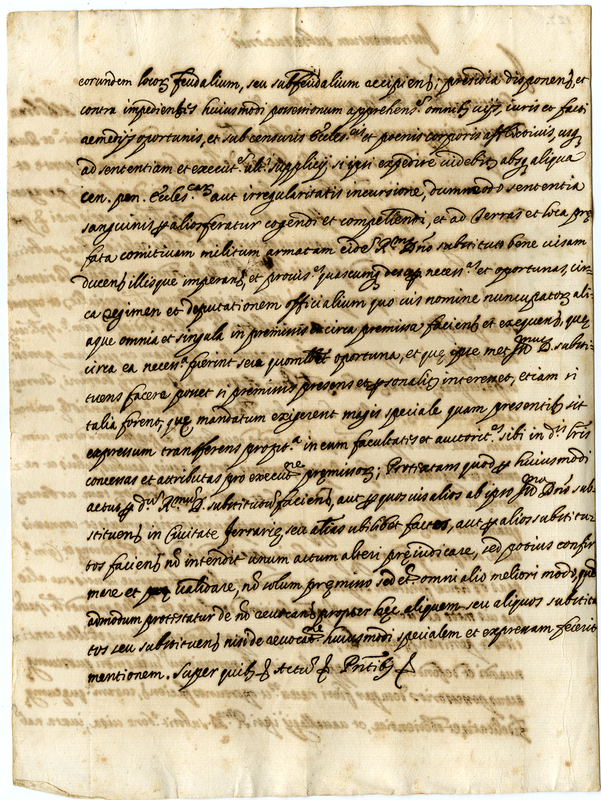 eorundem locor. feudalium, seu subfeudalium accipiend. presidia disponend. et
contra impedientes huiusmodi possessionum apprehens. omnib. vijs, iuris et facti
remedijs oportunis, et sub censuris Eccles.cis et poenis corporis afflictivis, usq.
ad sententiam et execut. ult. supplicij si ipsi expedire videbit. absq. aliqua
cen. pen. Eccles. aut irregularitatis incursione, dummodo sententia
sanguinis p. alios feratur cogendi et compellendi, et ad Terras et loca prę
fata comitivam militum armatam eidem R.mo D.no substituto bene visam
ducend. illisque imperand. et provis. quascunq. desup. necess. et oportunas, cir
ca regimen et deputationem officialium quo cis nomine nuncupator. ali
aque omnia et singula in premissis et circa premissa faciend. et exequend. quę
circa ea necess. fuerint seu quomolt. oportuna, et quę ipse met Ill.mus D. substi
tuens facere posset si premissis presens et personalit. interesset, etiam si
talia forent, quę mandatum exigerent magis speciale quam presentib. sit
expressum transferens in eum facultates et autorit. sibi in d.is l.ris
concessas et attributas pro execut.ne premissor. Protestatum quod p. huiusmodi
actus p. d. R.mum D. substitutum faciend. aut p. quosvis alios ab ipso Ill.mo D.no sub
stituend. in Civitate Ferrarię seu alias ubilibet factos, aut p. alios substitu
tos faciend. nō intendit unum actum alteri pręiudicare, sed potius confir
mare et validare, nō solum premisso sed et omni alio meliori modo, que
admodum protestatur de nō revocand. propter hęc aliquem seu aliquos substitu
tos seu substituend. nisi de revocat.ne huiusmodi specialem et expressam fecerit
mentionem. Super quib. Actu Pntib.